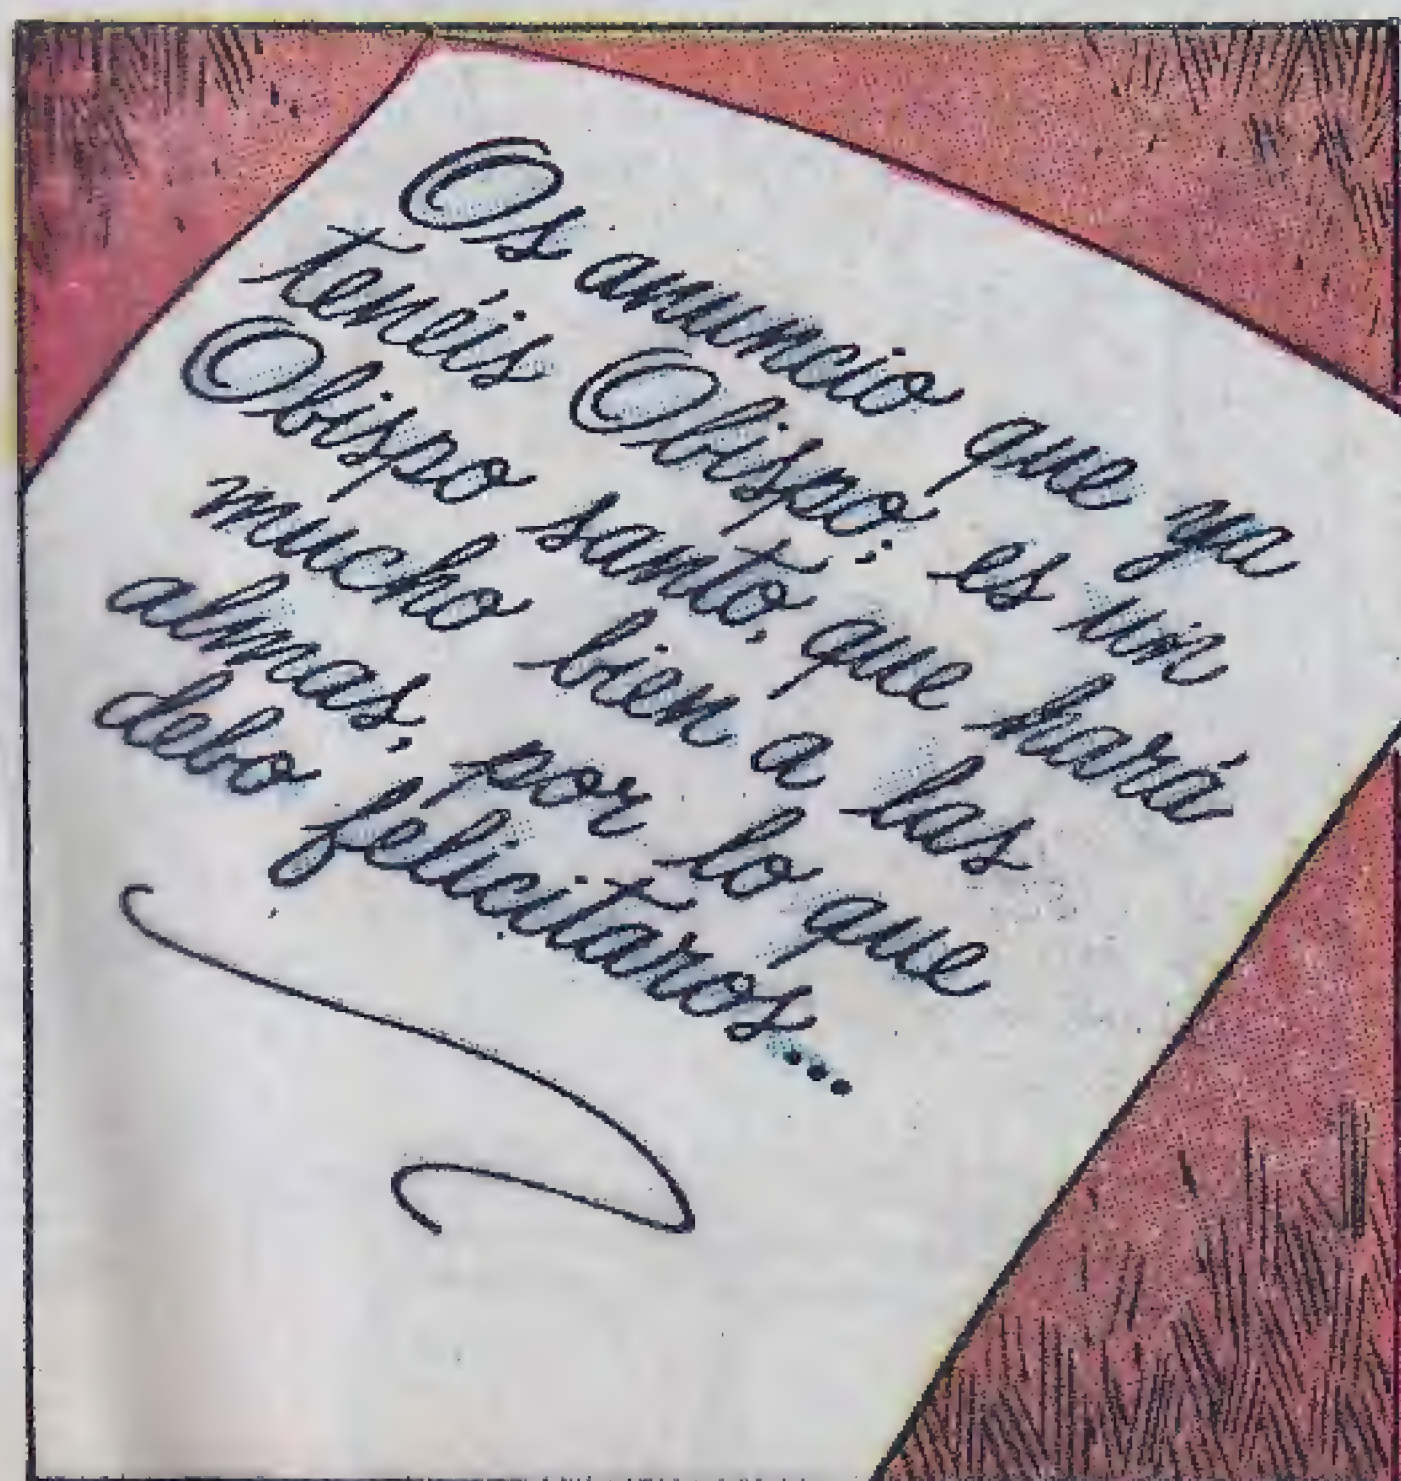 Os anuncio que ya
tenéis Obispo; es un
Obispo santo, que hará
mucho bien a las
almas; por lo que
debo felicitaros...